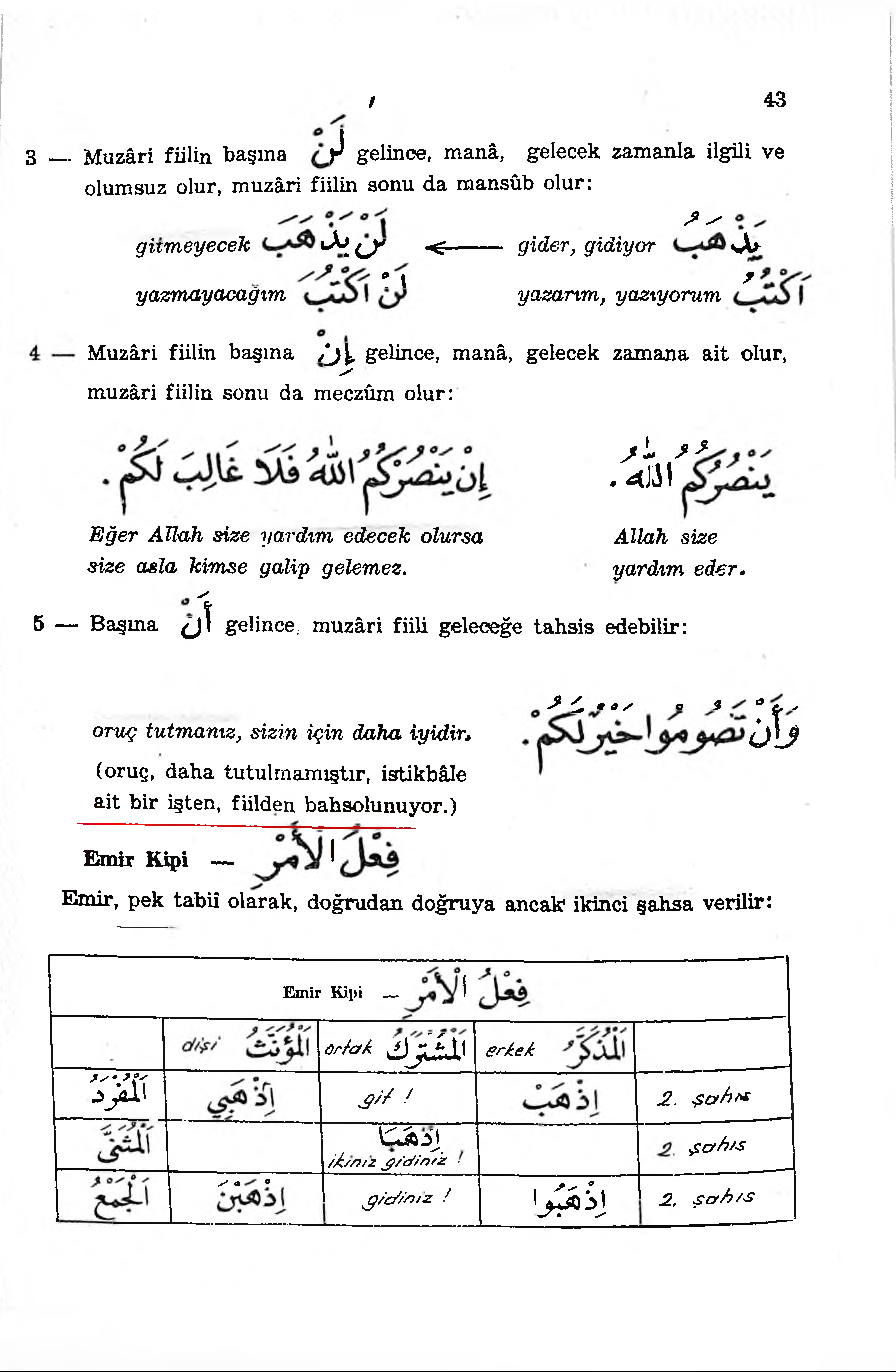 43
3 — Muzâri fiilin başına لَنْ gelince, manâ, gelecek zamanla ilgili ve
olumsuz olur, muzâri fiilin sonu da mansûb olur:
gitmeyecek لَنْ يَذْهَبَ <—— gider, gidiyor يَذْهَبُ
yazmayacağım لَنْ اَكْتُبَ yazarım, yazıyorum اَكْتُبُ
4 — Muzâri fiilin başına إِنْ gelince, manâ, gelecek zamana ait olur,
muzâri fiilin sonu da meczûm olur:
إِنْ يَنْصُرْكُمُ اللهُ فَلَا غَالِبَ لَكُمْ. يَنْصُرُكُمُ اللهُ.
Eğer Allah size yardım edecek olursa Allah size
size asla kimse galip gelemez. yardım eder.
5 — Başına أَنْ gelince, muzâri fiili geleceğe tahsis edebilir:
oruç tutmanız, sizin için daha iyidir. وَأَنْ تَصُومُوا خَيْرٌ لَكُمْ.
(oruç, daha tutulmamıştır, istikbâle
ait bir işten, fiilden bahsolunuyor.)
Emir Kipi — فِعْلُ الْأَمْرِ
Emir, pek tabiî olarak, doğrudan doğruya ancak ikinci şahsa verilir:
Emir Kipi — فِعْلُ الْأَمْرِ
dişi اَلْمُؤَنَّثُ ortak اَلْمُشْتَرَكُ erkek اَلْمُذَكَّرُ
اَلْمُفْرَدُ إِذْهَبِي git ! إِذْهَبْ 2. şahıs
اَلْمُثَنَّى إِذْهَبَا 2. şahıs
ikiniz gidiniz !
اَلْجَمْعُ إِذْهَبْنَ gidiniz ! إِذْهَبُوا 2. şahıs